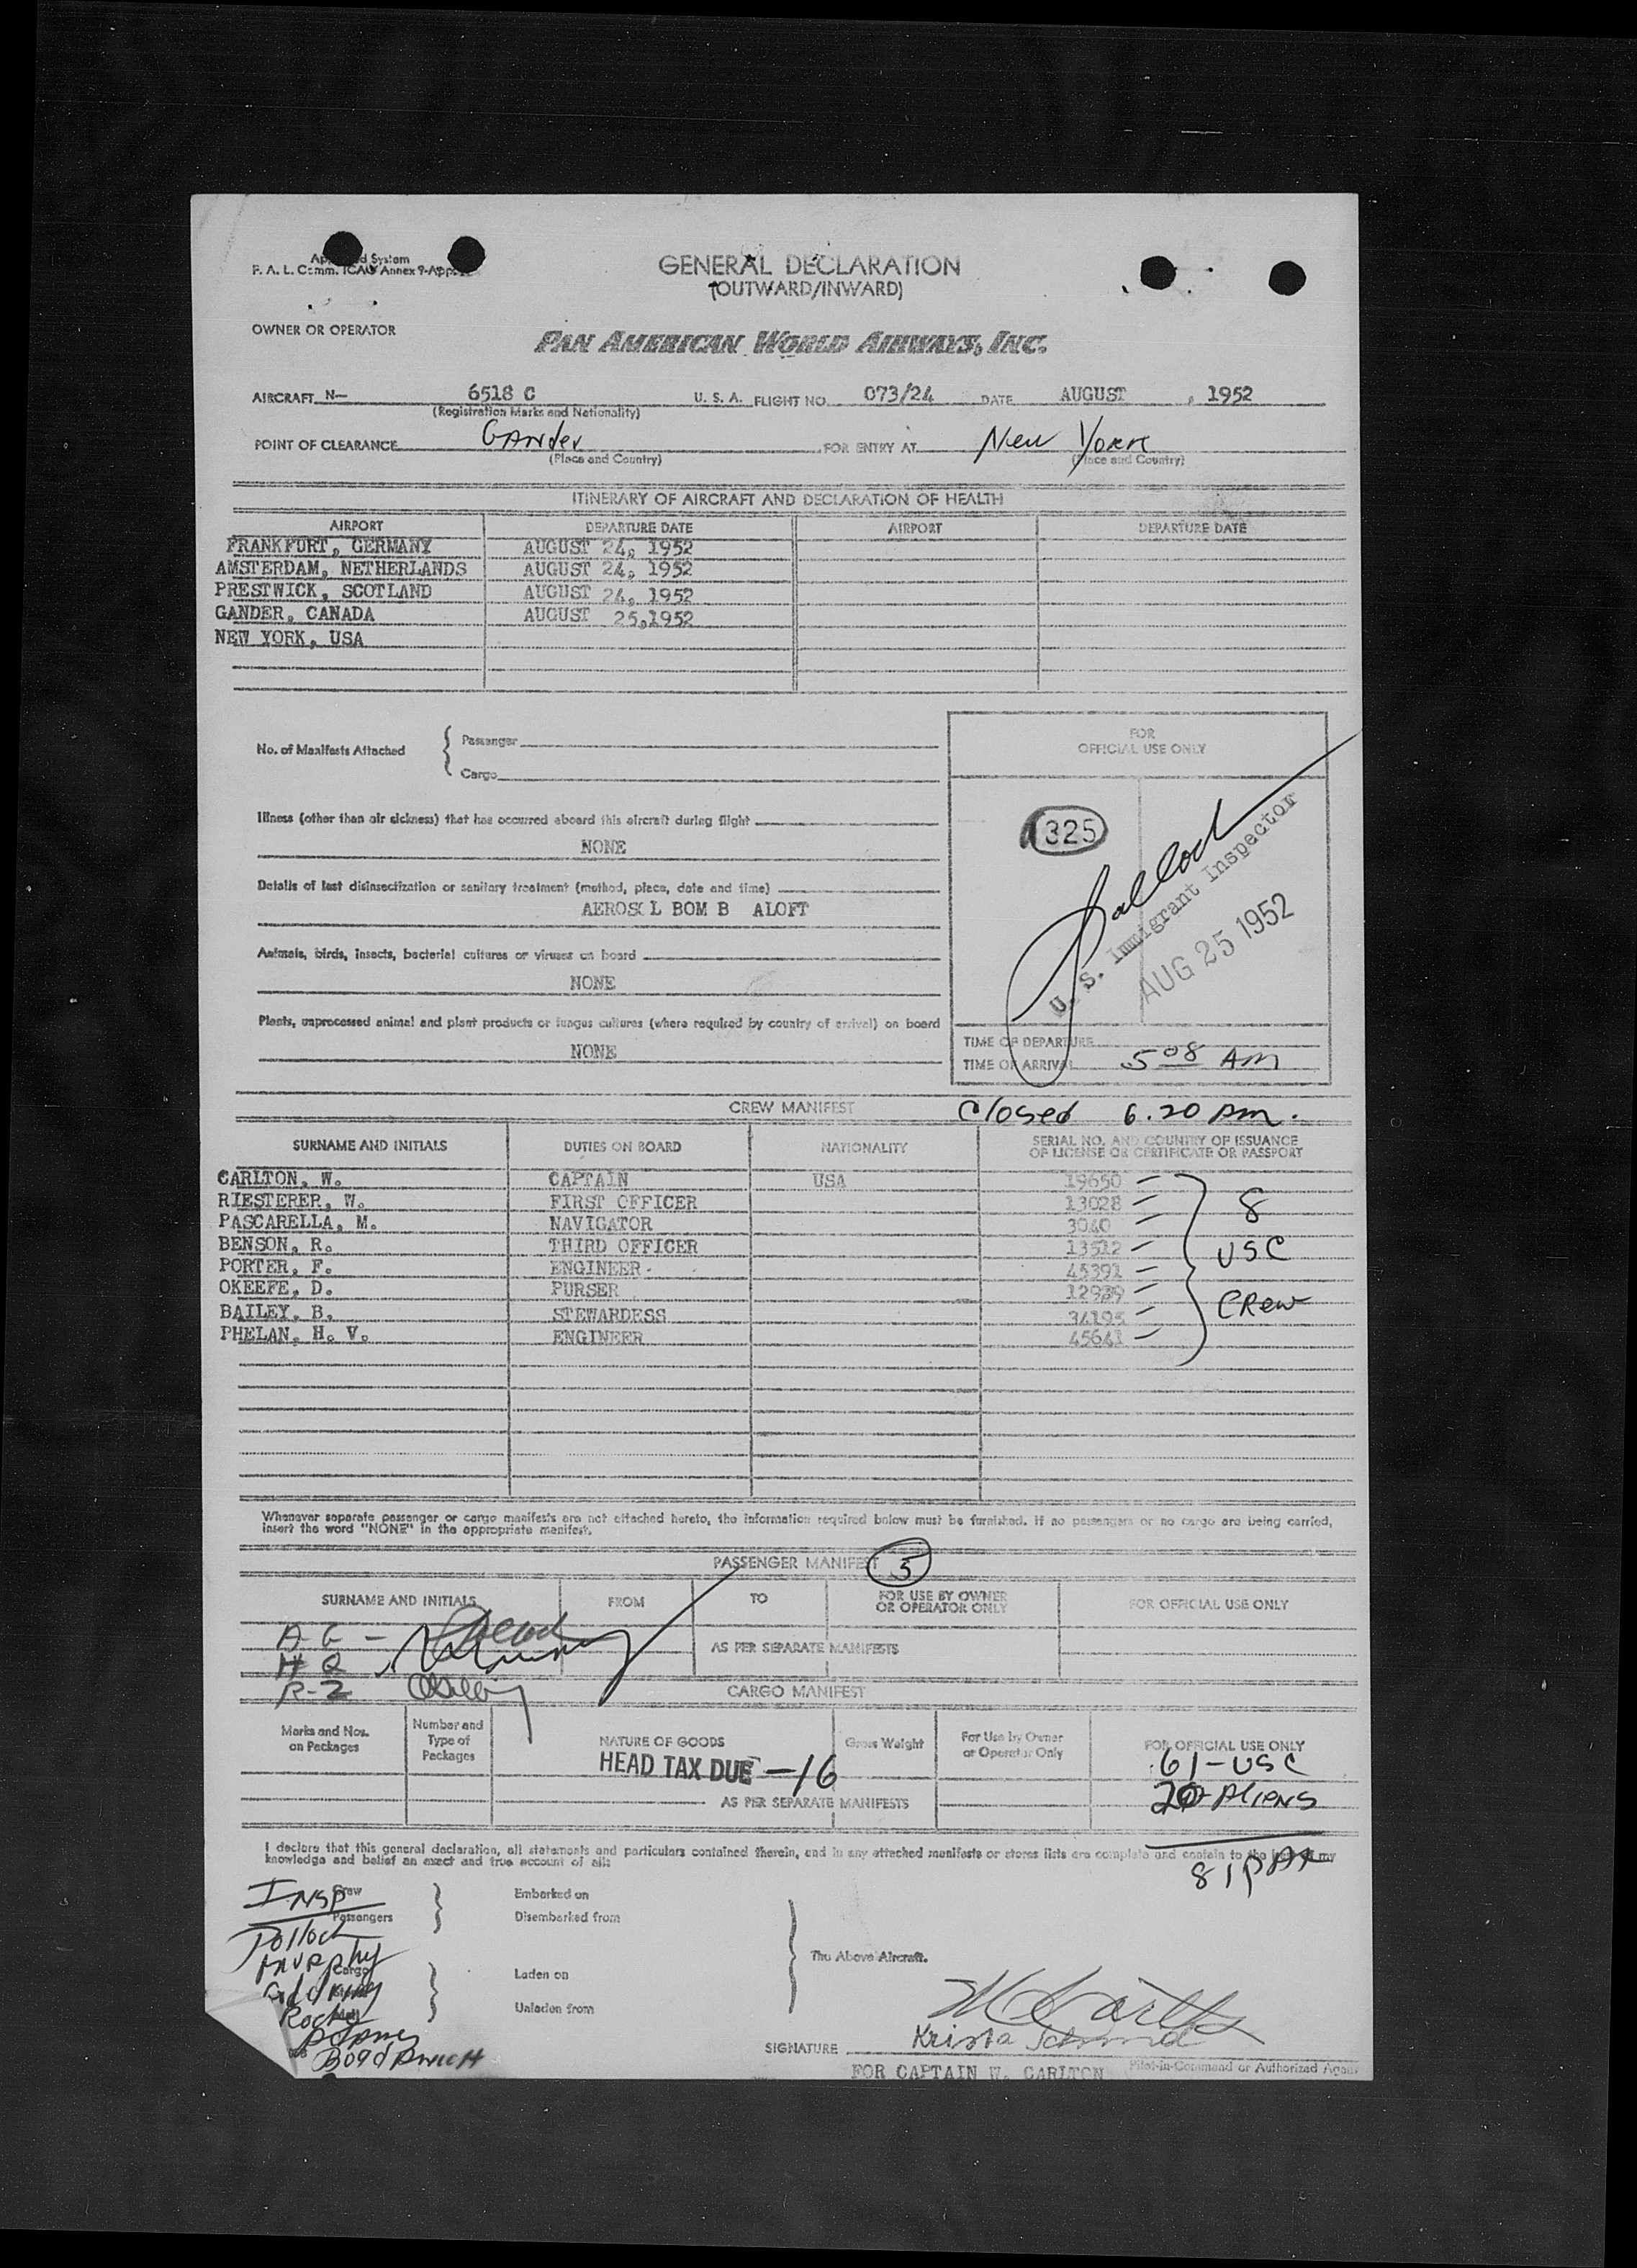 Ap d System
F. A. L. Comm. ICAO Annex 9-App.
GENERAL DECLARATION
(OUTWARD/INWARD)
OWNER OR OPERATOR
PAN AMERICAN WORLD AIRWAYS, INC.
AIRCRAFT N— 6518 C U. S. A. FLIGHT NO. 073/24 DATE AUGUST , 1952
(Registration Marks and Nationality)
POINT OF CLEARANCE Gander FOR ENTRY AT New York
(Place and Country) (Place and Country)
ITINERARY OF AIRCRAFT AND DECLARATION OF HEALTH
AIRPORT DEPARTURE DATE AIRPORT DEPARTURE DATE
FRANKFURT, GERMANY AUGUST 24, 1952
AMSTERDAM, NETHERLANDS AUGUST 24, 1952
PRESTWICK, SCOTLAND AUGUST 24, 1952
GANDER, CANADA AUGUST 25,1952
NEW YORK, USA
No. of Manifests Attached
Passenger
Cargo
Illness (other than air sickness) that has occurred aboard this aircraft during flight
NONE
Details of last disinsectization or sanitary treatment (method, place, date and time)
AEROSOL BOM B ALOFT
Animals, birds, insects, bacterial cultures or viruses on board
NONE
Plants, unprocessed animal and plant products or fungus cultures (where required by country of arrival) on board
NONE
FOR
OFFICIAL USE ONLY
325
U. S. Immigrant Inspector
AUG 25 1952
TIME OF DEPARTURE
TIME OF ARRIVAL 5 08 AM
CREW MANIFEST Closed 6.20 am.
SURNAME AND INITIALS DUTIES ON BOARD NATIONALITY SERIAL NO. AND COUNTRY OF ISSUANCE
OF LICENSE OR CERTIFICATE OR PASSPORT
CARLTON, W. CAPTAIN USA 19650
RIESTERER, W. FIRST OFFICER 13028
PASCARELLA, M. NAVIGATOR 3040
BENSON, R. THIRD OFFICER 13512
PORTER, F. ENGINEER 45391
OKEEFE, D. PURSER 12939
BAILEY, B. STEWARDESS 34195
PHELAN, H. V. ENGINEER 45641
8
USC
CRew
Whenever separate passenger or cargo manifests are not attached hereto, the information required below must be furnished. If no passengers or no cargo are being carried,
insert the word "NONE" in the appropriate manifest.
PASSENGER MANIFEST 5
SURNAME AND INITIALS FROM TO FOR USE BY OWNER
OR OPERATOR ONLY FOR OFFICIAL USE ONLY
AS PER SEPARATE MANIFESTS
R-2
CARGO MANIFEST
Marks and Nos.
on Packages
Number and
Type of
Packages
NATURE OF GOODS Gross Weight
For Use by Owner
or Operator Only
FOR OFFICIAL USE ONLY
HEAD TAX DUE —16
61-USC
20-Aliens
AS PER SEPARATE MANIFESTS
I declare that this general declaration, all statements and particulars contained therein, and in any attached manifests or stores lists are complete and contain to the best of my
knowledge and belief an exact and true account of all:
81 PAX
INSP
Crew
Passengers
Pollock
Murphy
Cargo
Roche
Embarked on
Disembarked from
Laden on
Unladen from
The Above Aircraft.
SIGNATURE Krista Schmid
FOR CAPTAIN W. CARLTON Pilot-in-Command or Authorized Agent